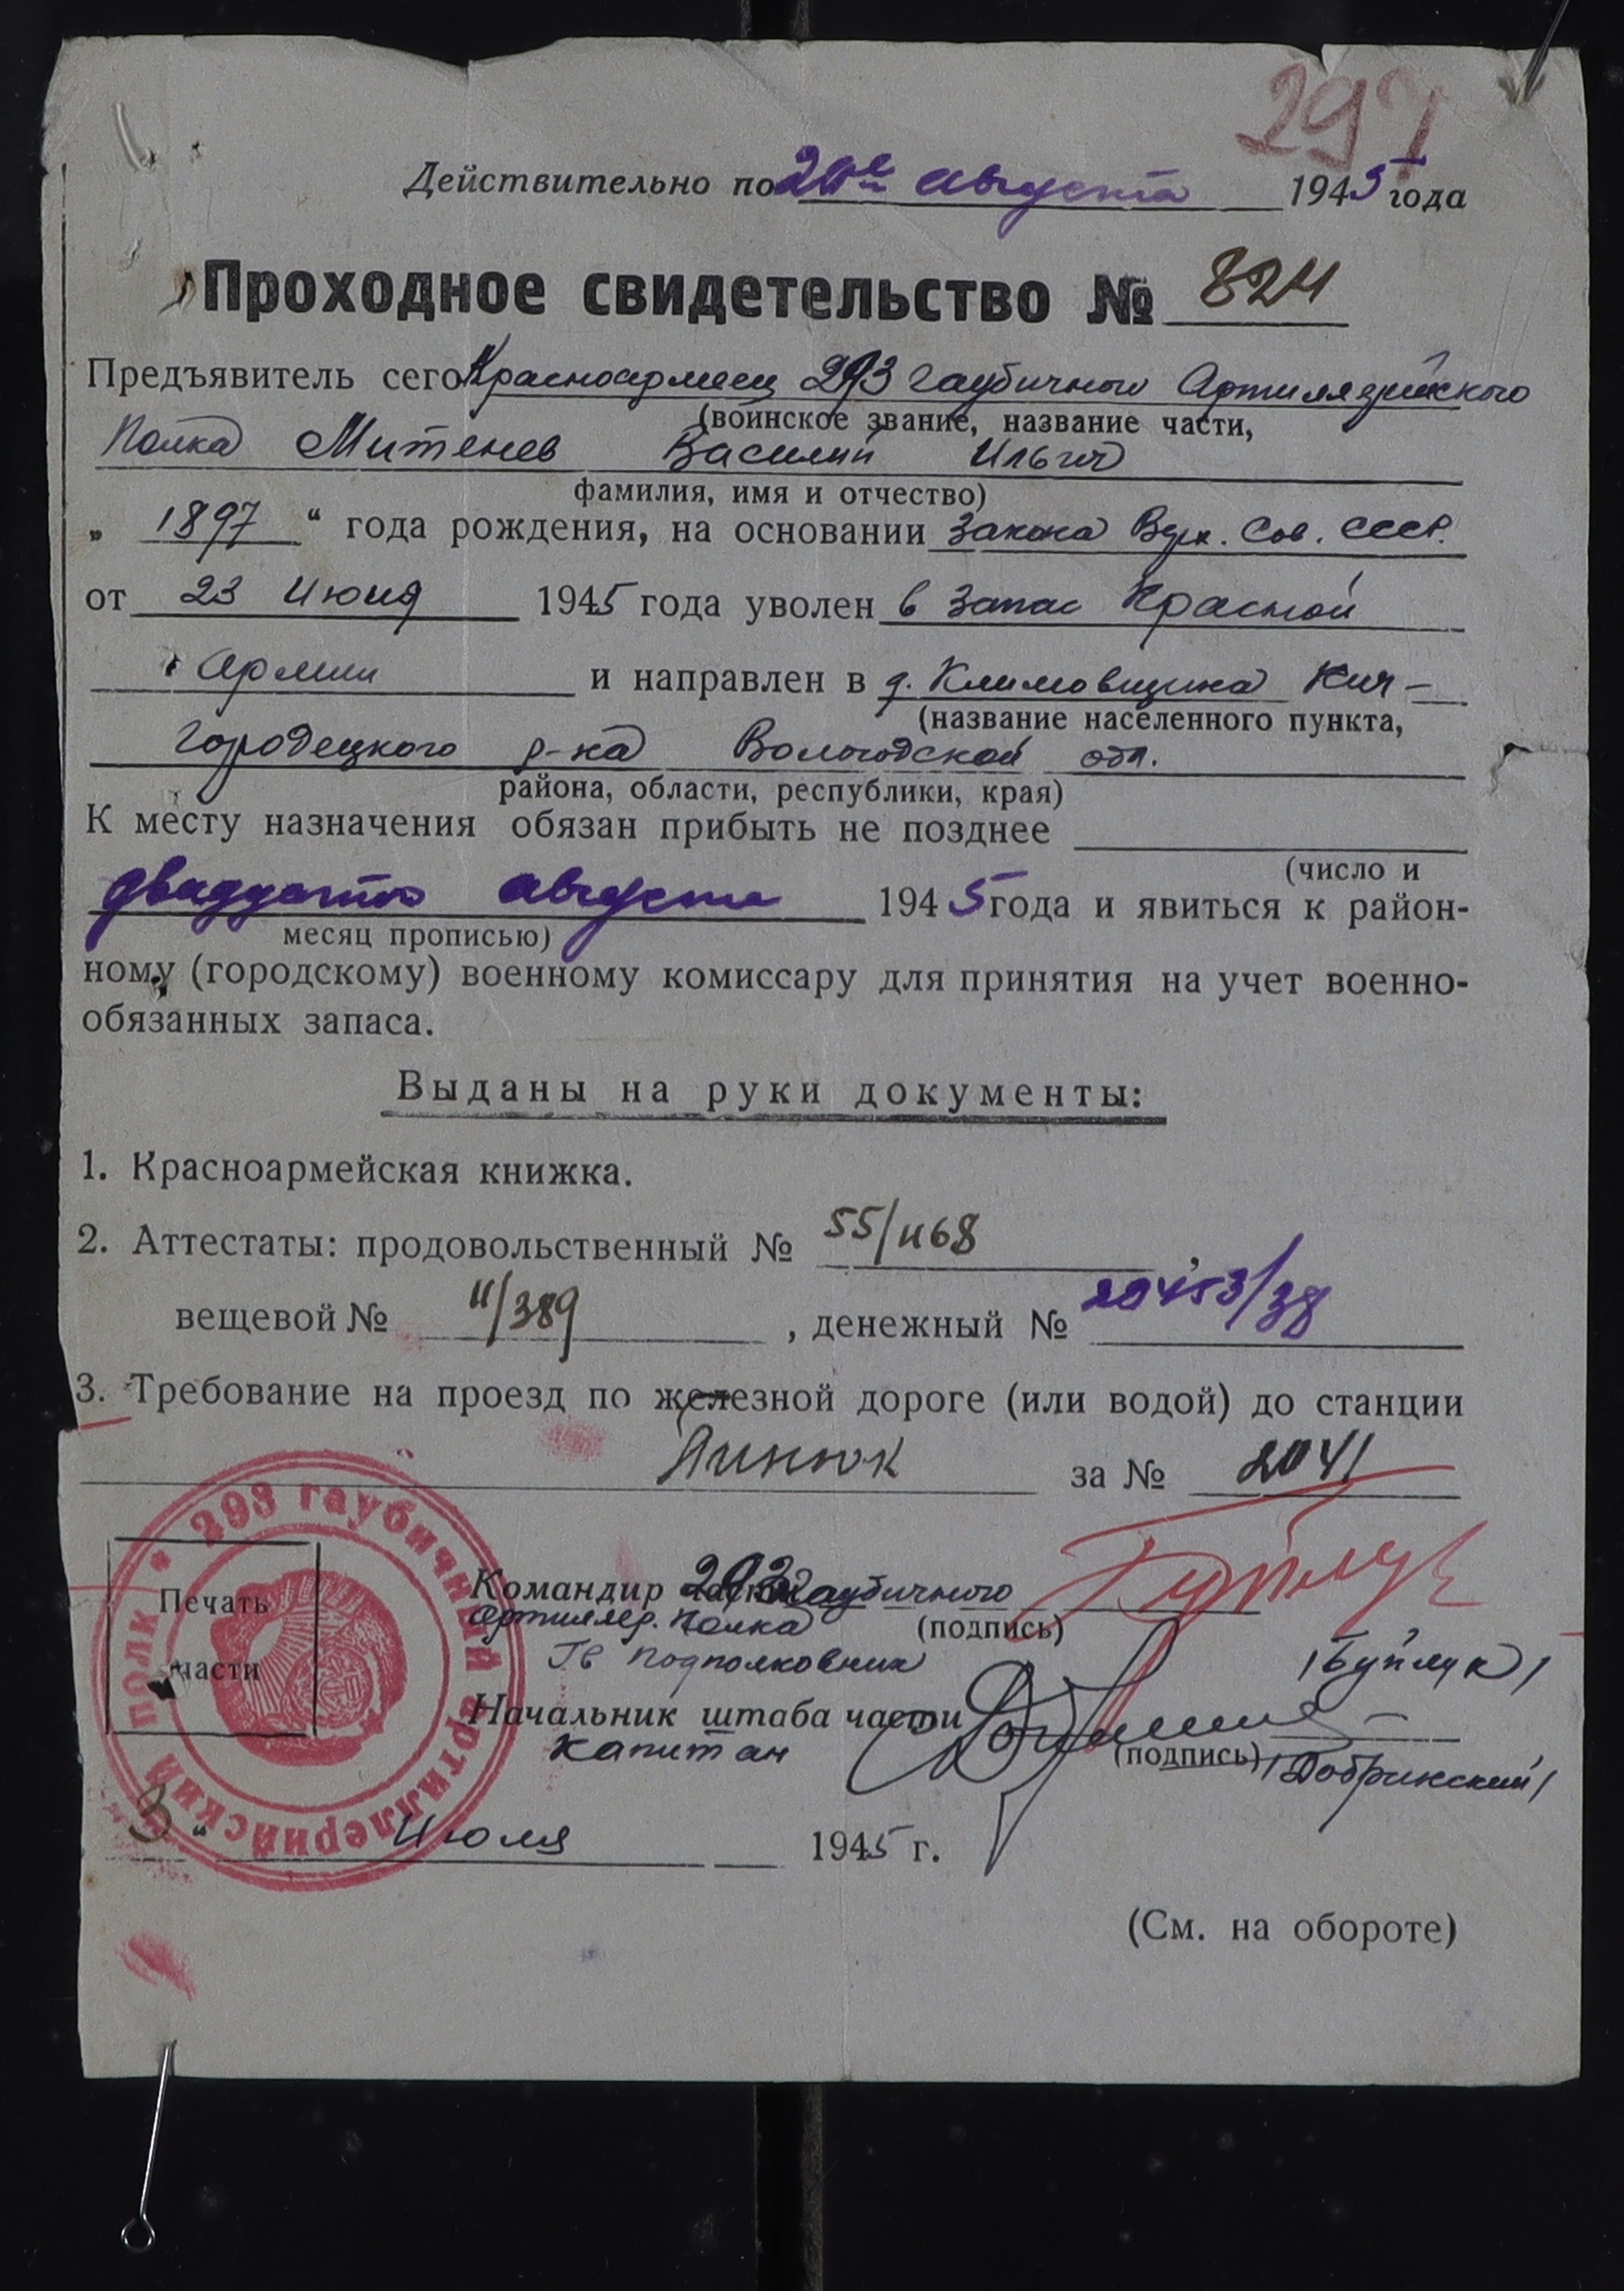 297
Действительно по 20е августа 1945 года
Проходное свидетельство № 824
Предъявитель сего Красноармеец 293 гаубичного Артиллерийского
(воинское звание, название части,
Полка Митенев Василий Ильич
фамилия, имя и отчество)
„ 1897 “ года рождения, на основании Закона Верх. Сов. СССР.
от 23 Июня 1945 года уволен в запас Красной
Армии и направлен в д. Климовщина Кич-
(название населенного пункта,
Городецкого р-на Вологодской обл.
района, области, республики, края)
К месту назначения обязан прибыть не позднее
(число и
двадцатого августа 1945 года и явиться к район-
месяц прописью)
ному (городскому) военному комиссару для принятия на учет военно-
обязанных запаса.
Выданы на руки документы:
1. Красноармейская книжка.
2. Аттестаты: продовольственный № 55/468,
вещевой № 11/389, денежный № 20453/38
3. Требование на проезд по железной дороге (или водой) до станции
Пинюк за № 2041
* 293 гаубичный артиллерийский полк
Печать
части
Командир части 293 Гаубичного
артиллер. Полка (подпись)
Гв подполковник /Буйлук/
Начальник штаба части
капитан (подпись) /Добринский/
3 “ Июля 1945 г.
(См. на обороте)